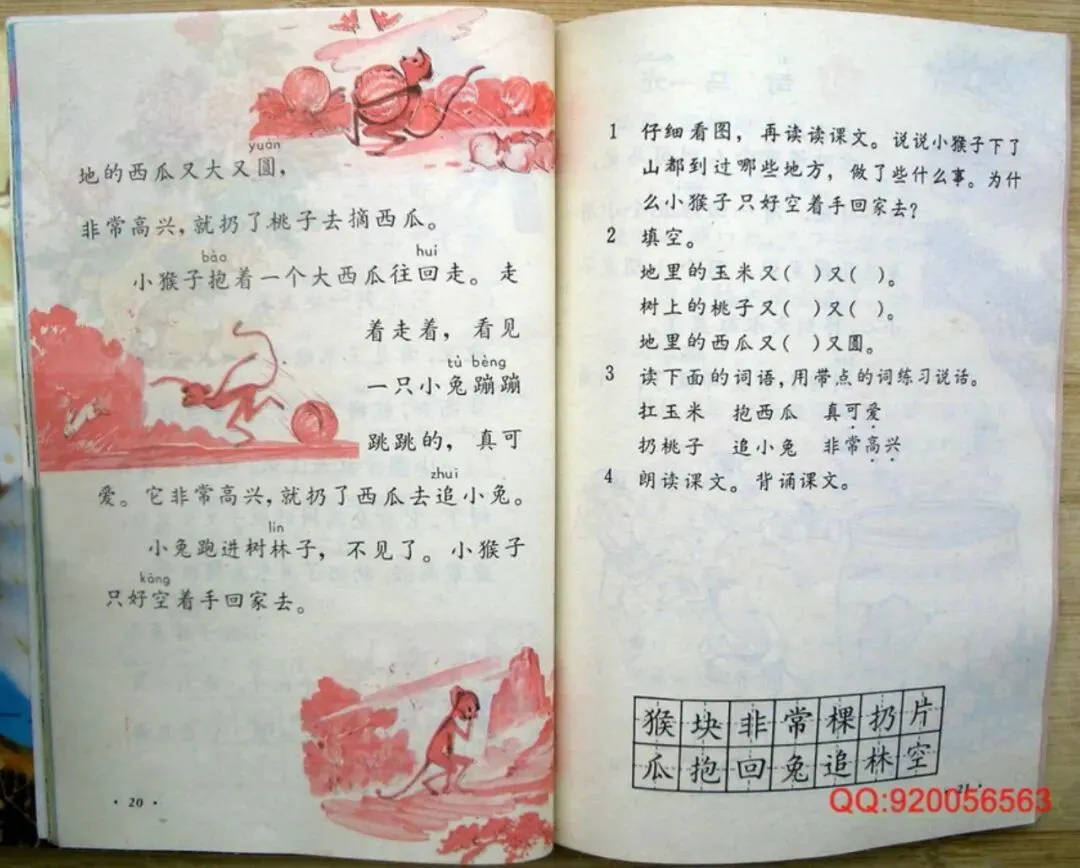 yuán
地的西瓜又大又圆，
非常高兴，就扔了桃子去摘西瓜。
bào huí
小猴子抱着一个大西瓜往回走。走
着走着，看见
tù bèng
一只小兔蹦蹦
跳跳的，真可
zhuī
爱。它非常高兴，就扔了西瓜去追小兔。
lín
小兔跑进树林子，不见了。小猴子
kōng
只好空着手回家去。
·20·
1 仔细看图，再读读课文。说说小猴子下了
山都到过哪些地方，做了些什么事。为什
么小猴子只好空着手回家去？
2 填空。
地里的玉米又( )又( )。
树上的桃子又( )又( )。
地里的西瓜又( )又圆。
3 读下面的词语，用带点的词练习说话。
扛玉米 抱西瓜 真可爱
扔桃子 追小兔 非常高兴
4 朗读课文。背诵课文。
猴块非常棵扔片
瓜抱回兔追林空
·21·
QQ:920056563